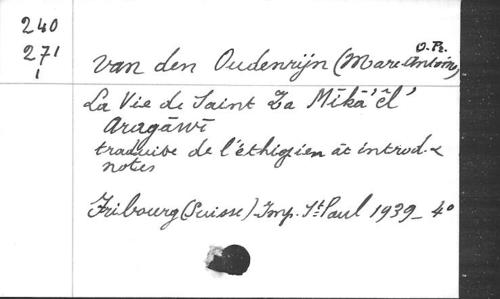 240
271
1
O.P.
van den Oudenrijn (Marc-Antoine)
La Vie de Saint Za Mīkā'ēl'
Aragāwī
traduite de l'éthiopien et introd. &
notes
Fribourg (Suisse) Imp. St Paul 1939_ 4°